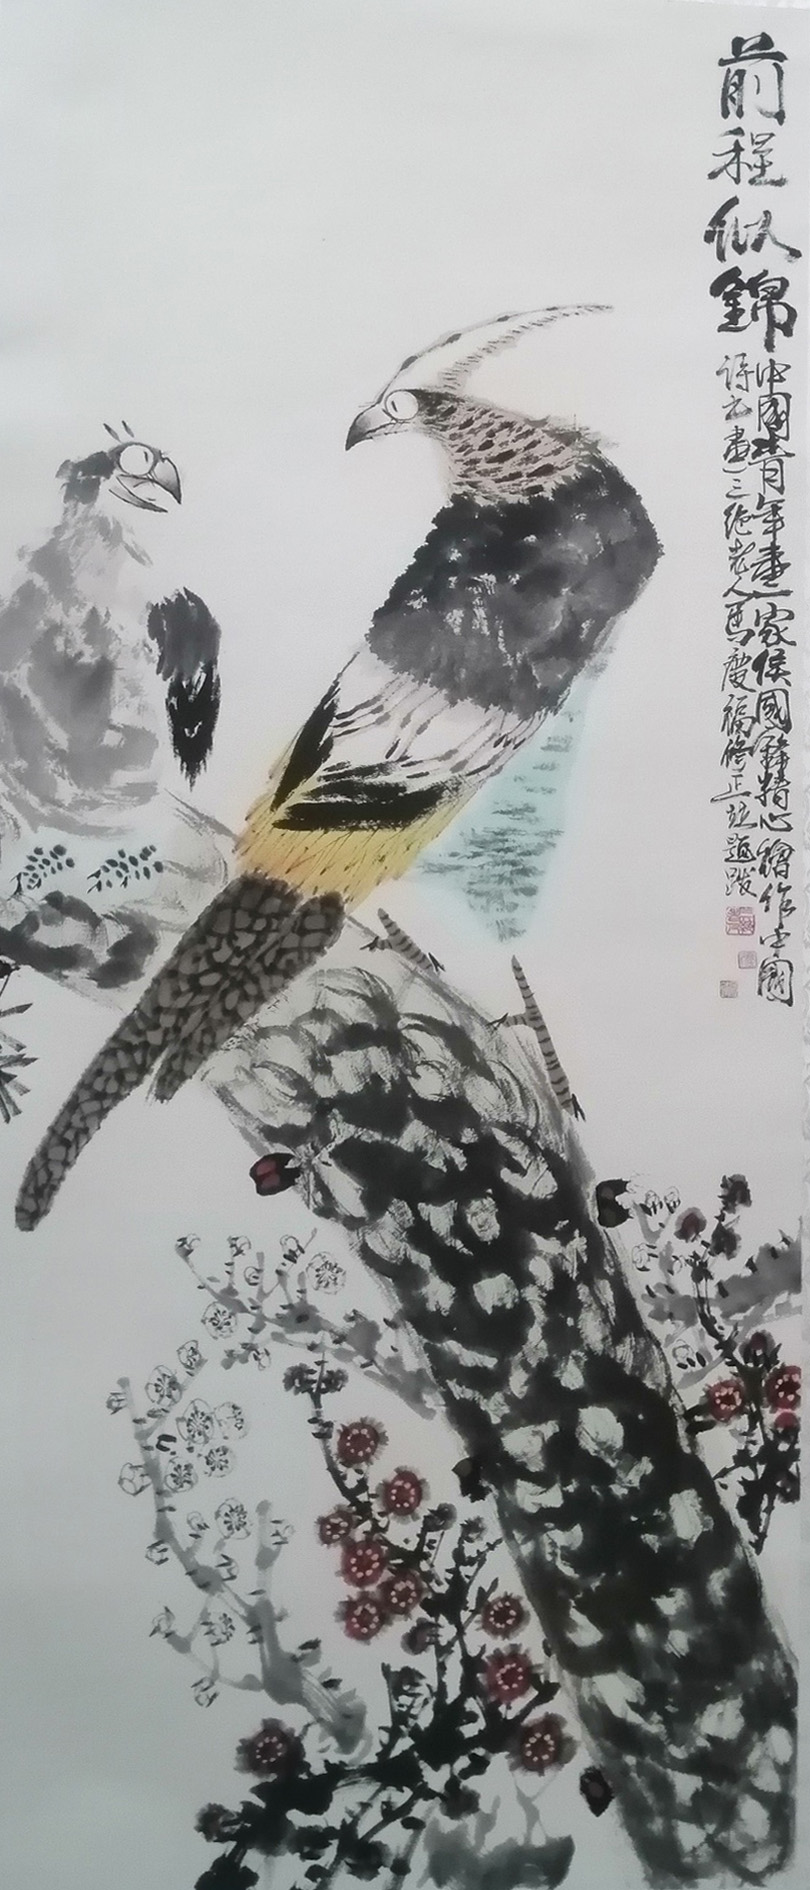 前程似錦
中國青年畫家侯國鋒精心繪作中國
詩书畫三絕老人馬慶福修正並題跋